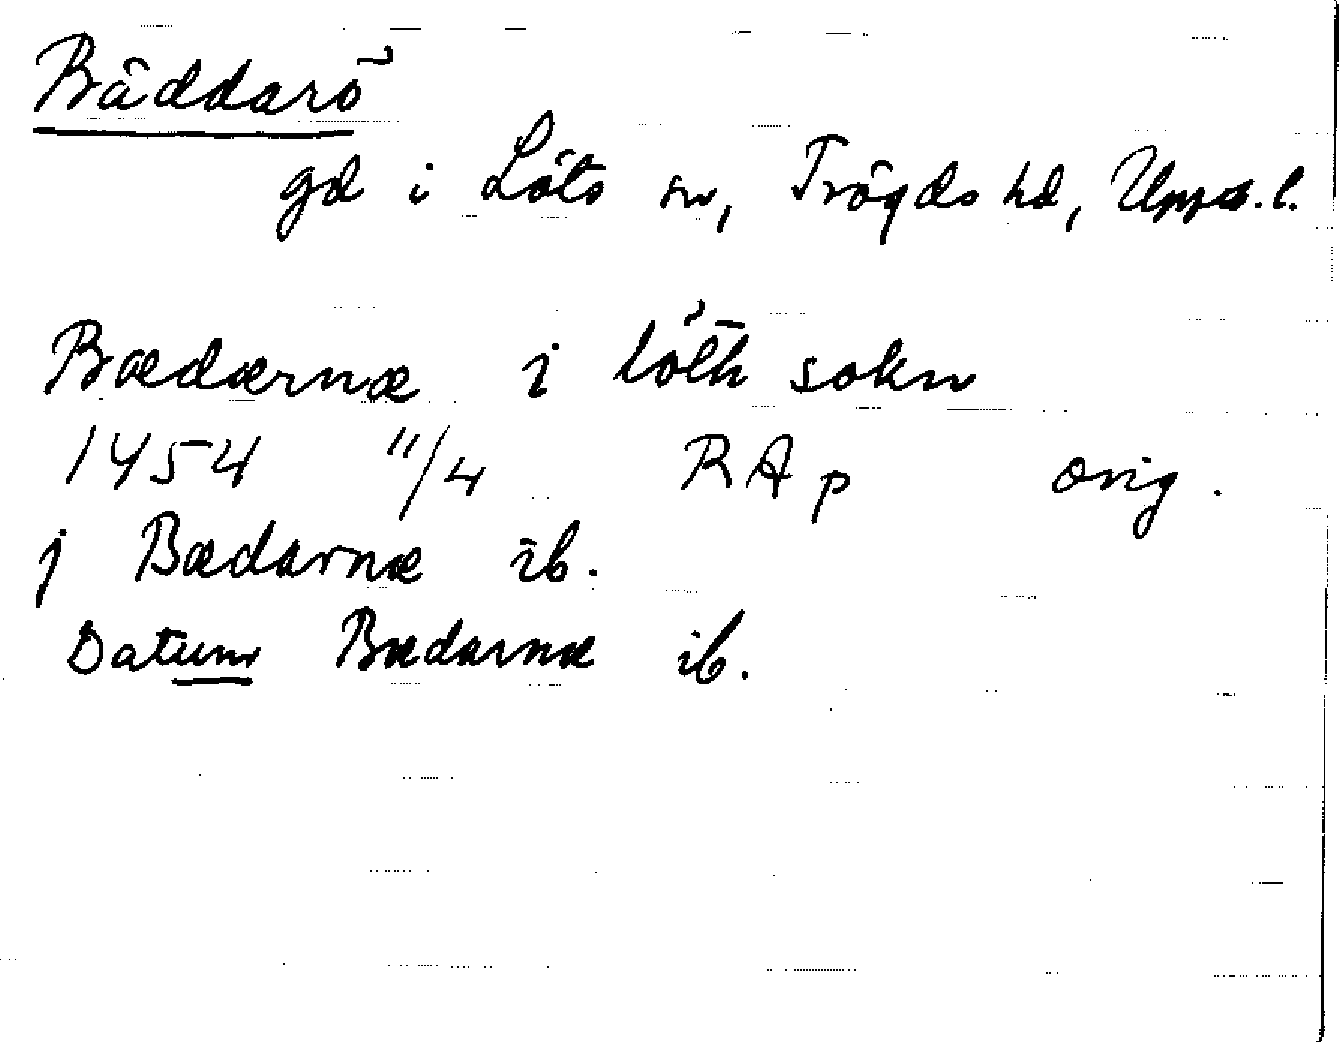 Bäddarö
gd i Löts sn, Trögds hd, Upps.l.
Bædærnæ i löth sokn
1454 11/4 RAp orig.
j Bædarnæ ib.
Datum Bædarnæ ib.